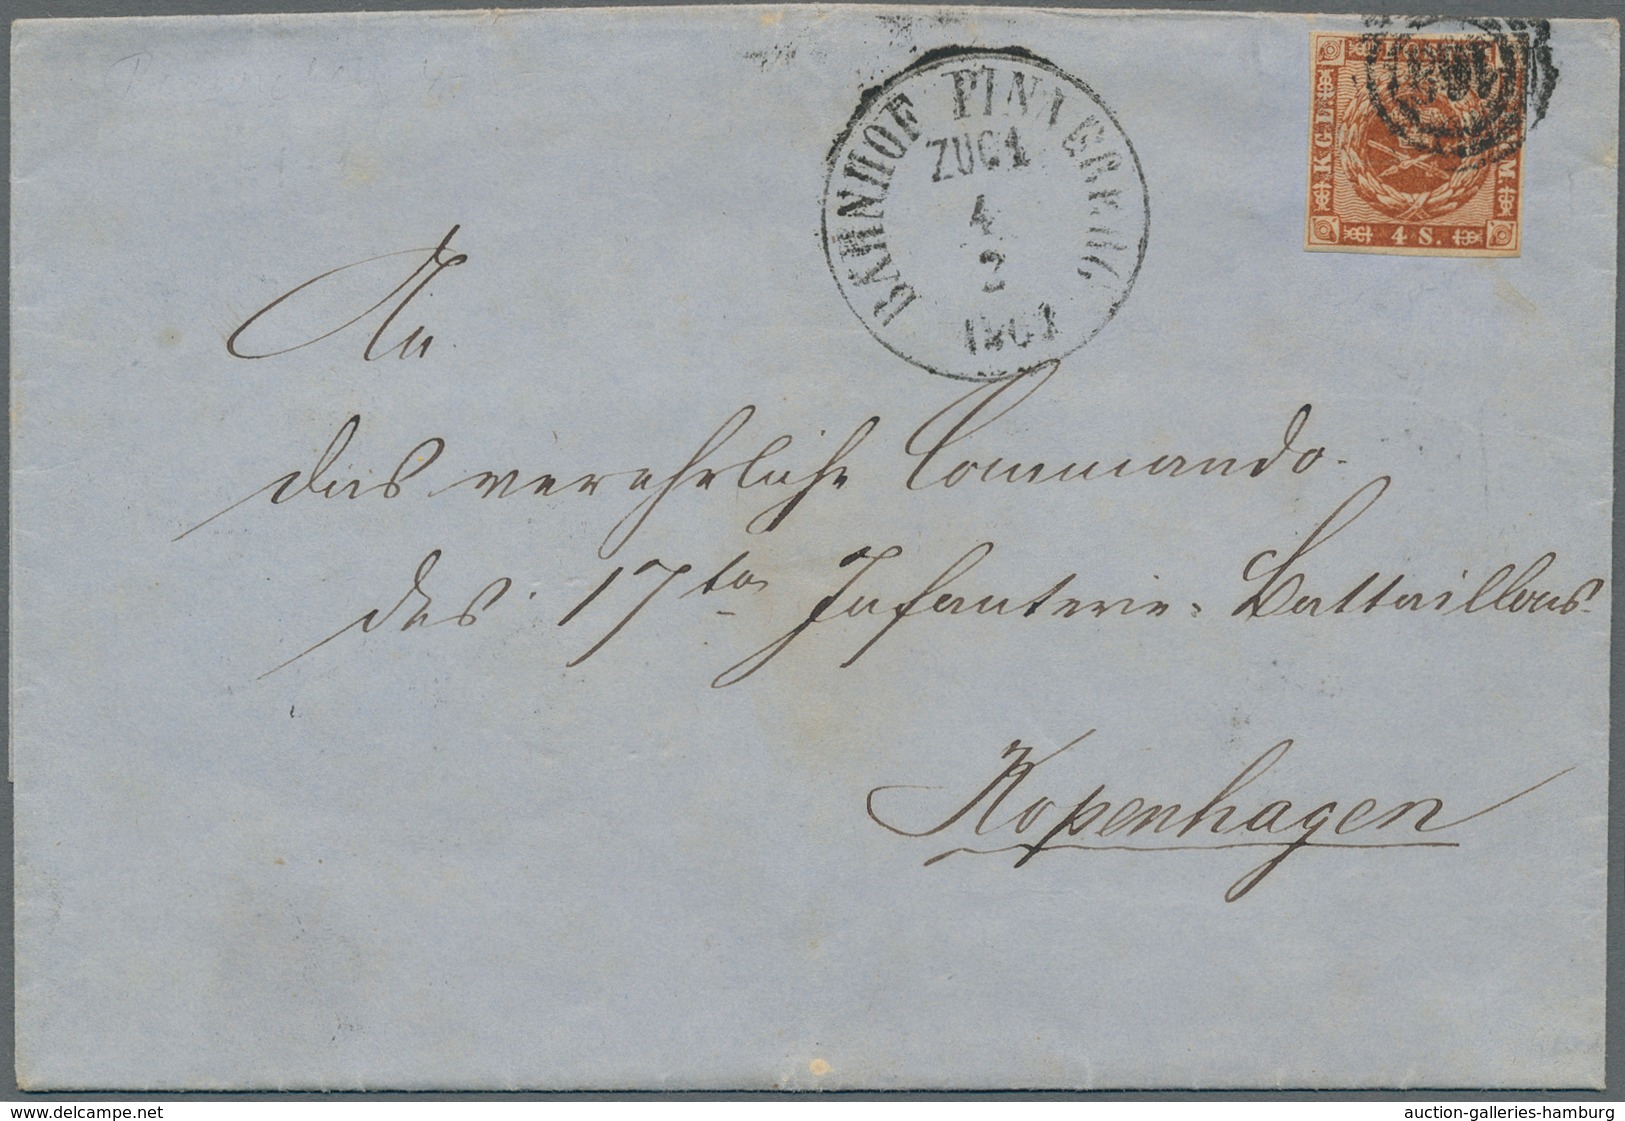 BAHNHOF PINNEBERG
ZUG 1
4
2
1861
KGL
M
4 S.
An
das verehrliche Commando
des 17ten Infanterie-Bataillons
Kopenhagen
www.delcampe.net
auction-galleries-hamburg